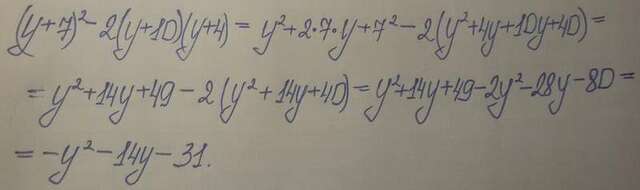 (y+7)²-2(y+10)(y+4)=y²+2·7·y+7²-2(y²+4y+10y+40)=
=y²+14y+49-2(y²+14y+40)=y²+14y+49-2y²-28y-80=
=-y²-14y-31.